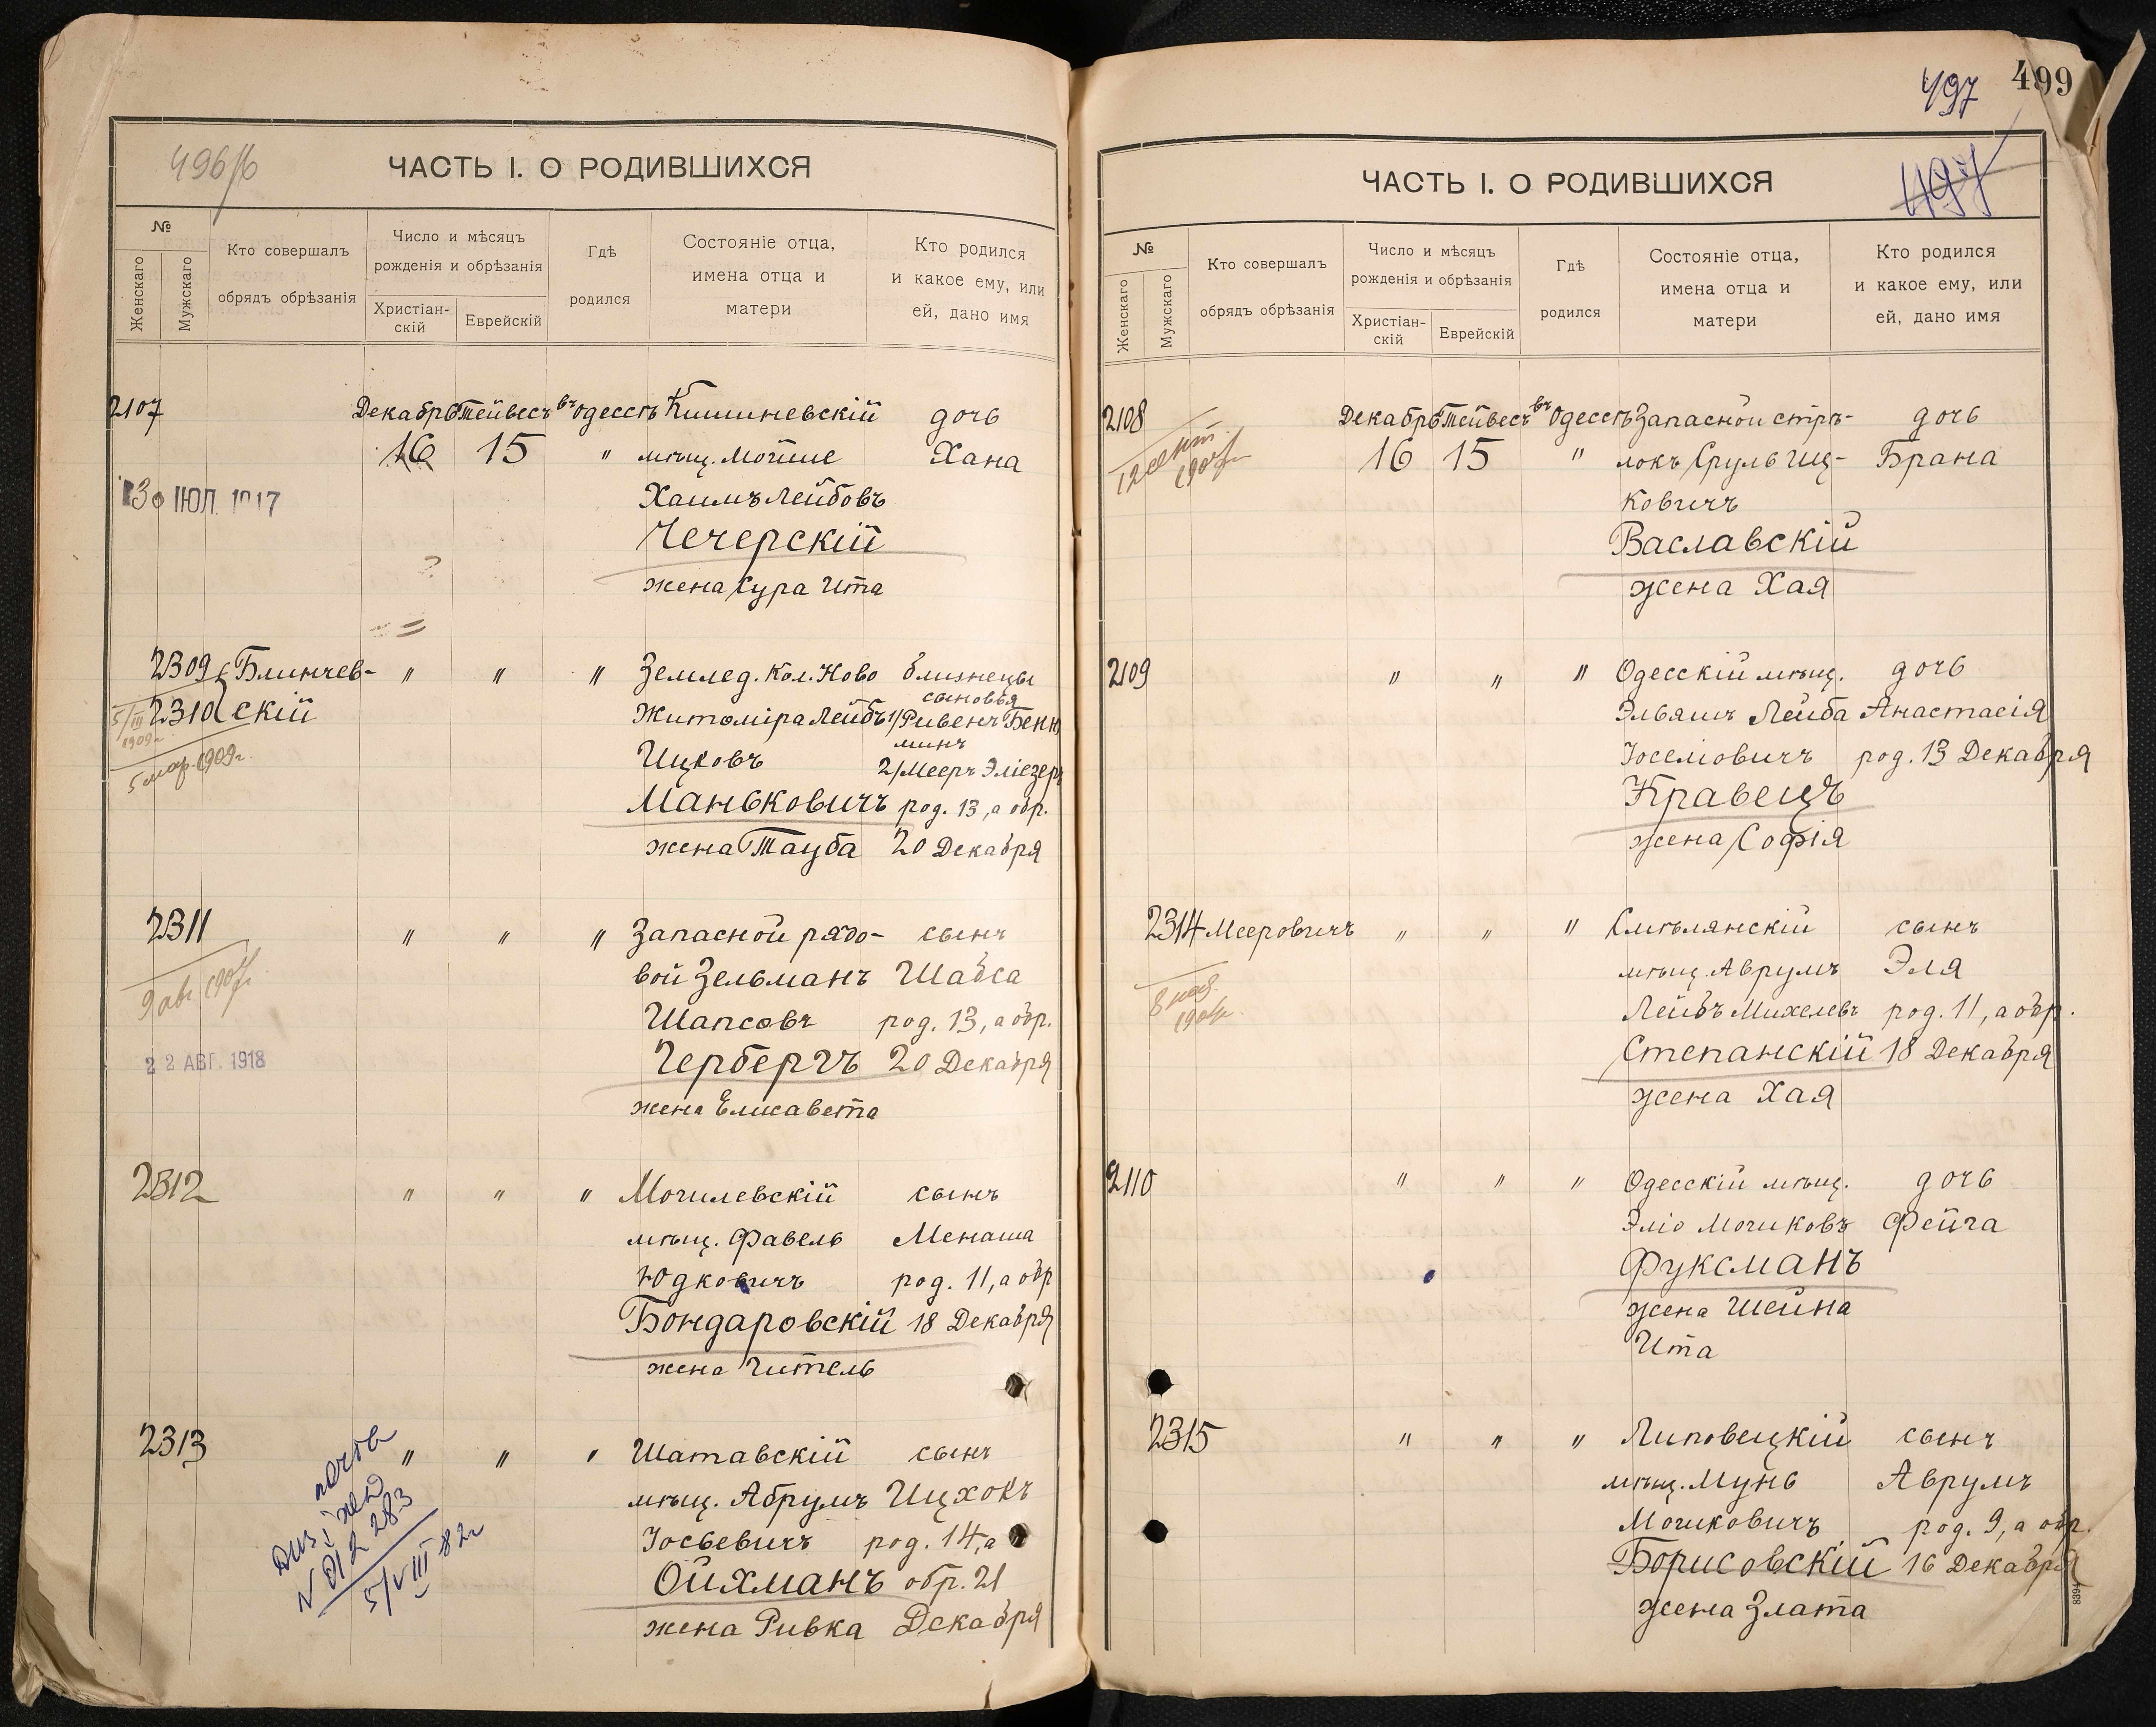 496 об
ЧАСТЬ I. О РОДИВШИХСЯ
№
Женскаго
Мужскаго
Кто совершалъ
обрядъ обрѣзанія
Число и мѣсяцъ
рожденія и обрѣзанія
Христіан-
скій
Еврейскій
Гдѣ
родился
Состояніе отца,
имена отца и
матери
Кто родился
и какое ему, или
ей, дано имя
2107 Декабрь Тейвесъ въ Одессѣ Кишиневскій дочь
16 15 " мѣщ. Мойше Хана
Хаимъ Лейбовъ
30 ІЮЛ. 1917
Чечерскій
жена Сура Ита
2309 Блинчев- " " " Землед. Кол. Ново близнецы
сыновья
2310 скій Житоміра Лейбъ 1/Рувенъ Беня
5/III 1909г.
минъ
5 мар. 1909г. Ицковъ 2/Мееръ Эліезеръ
Маньковичъ род. 13, а обр.
жена Тауба 20 Декабря
2311 " " " Запасной рядо- сынъ
9 авг. 1907г. вой Зельманъ Шабса
Шапсовъ род. 13, а обр.
22 АВГ. 1918 Герbергъ 20 Декабря
жена Елисавета
2312 " " " Могилевскій сынъ
мѣщ. Фавель Менаша
Юдковичъ род. 11, а обр
Бондаровскій 18 Декабря
жена Гитель
2313 " " " Шатавскій сынъ
мѣщ. Абрумъ Ицхокъ
Іосьевичъ род. 14, а
Ойхманъ обр. 21
жена Ривка Декабря
N 012 283
5/VIII 82г
497 499
ЧАСТЬ I. О РОДИВШИХСЯ
497
№
Женскаго
Мужскаго
Кто совершалъ
обрядъ обрѣзанія
Число и мѣсяцъ
рожденія и обрѣзанія
Христіан-
скій
Еврейскій
Гдѣ
родился
Состояніе отца,
имена отца и
матери
Кто родился
и какое ему, или
ей, дано имя
2108 Декабрь Тейвесъ въ Одессѣ Запасной стрѣ- дочь
12 сент. 1907г. 16 15 " локъ Сруль Иц- Брана
ковичъ
Ваславскій
жена Хая
2109 " " " Одесскій мѣщ. дочь
Эльяшъ Лейба Анастасія
Іосеміовичъ род. 13 Декабря
Кравецъ
жена Софія
2314 Мееровичъ " " " Смѣлянскій сынъ
мѣщ. Аврумъ Эля
8 1907г. Лейбъ Михелевъ род. 11, а обр.
Степанскій 18 Декабря
жена Хая
2110 " " " Одесскій мѣщ. дочь
Эліо Мошковъ Фейга
Фуксманъ
жена Шейна
Ита
2315 " " " Липовецкій сынъ
мѣщ. Мунь Аврумъ
Мошковичъ род. 9, а обр.
Борисовскій 16 Декабря
жена Злата